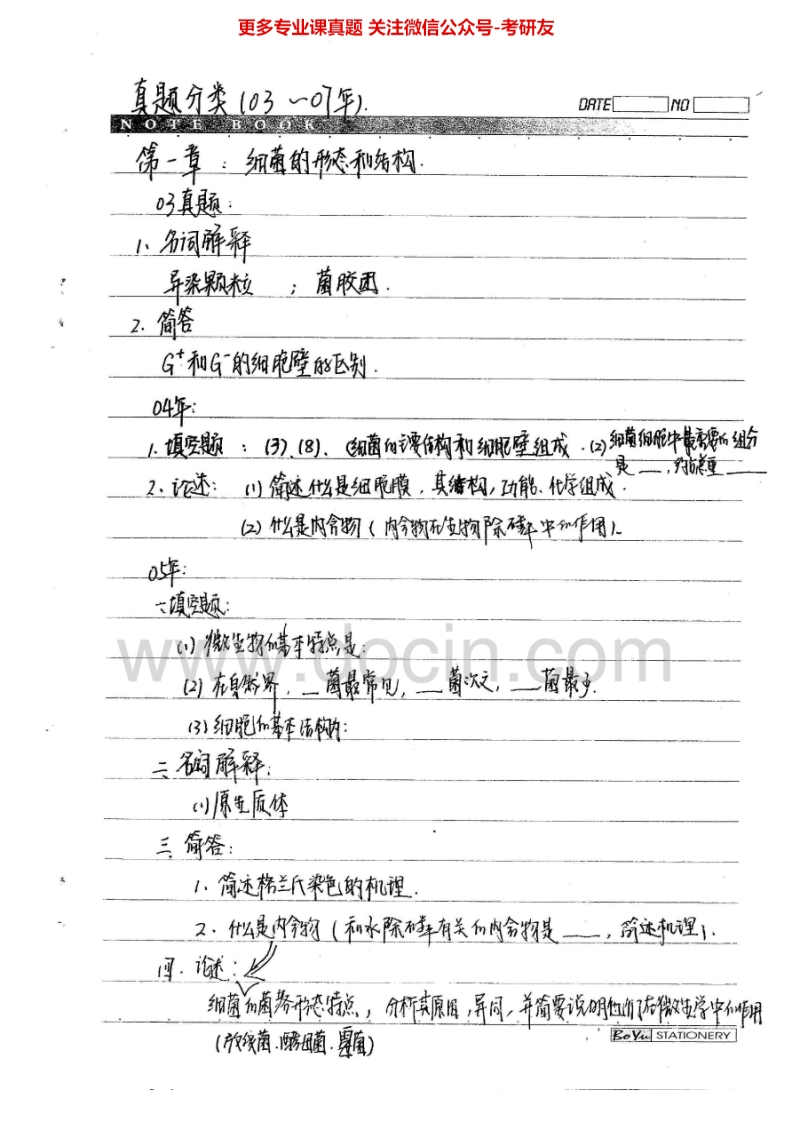 更多专业课真题 关注微信公众号-考研友
真题分类(03～07年).
DATE NO
NOTE BOOK
第一章：细菌的形态和结构.
03真题：
1、名词解释
异染颗粒 ；菌胶团.
2. 简答
G⁺和G⁻的细胞壁的区别.
04年：
1. 填空题：(3)、(8)、细菌的主要结构和细胞壁组成.(2)细菌细胞中最重要的组分
是__，约占总重__
2、论述：(1) 简述什么是细胞膜，其结构,功能、化学组成.
(2) 什么是内含物(内含物在生物除磷中的作用).
05年：
一填空题：
(1) 微生物的基本特点是：
(2) 在自然界，__菌最常见，__菌次之，__菌最少.
(3) 细胞的基本结构
二 名词解释：
(1) 原生质体
三 简答：
1、简述格兰氏染色的机理.
2. 什么是内含物(和水除磷有关的内含物是__，简述机理).
四. 论述：
www.docin.com
细菌的菌落形态特点，分析其原因，异同，并简要说明他们在微生学中的作用
(放线菌.酵母菌.霉菌)
BoYu STATIONERY